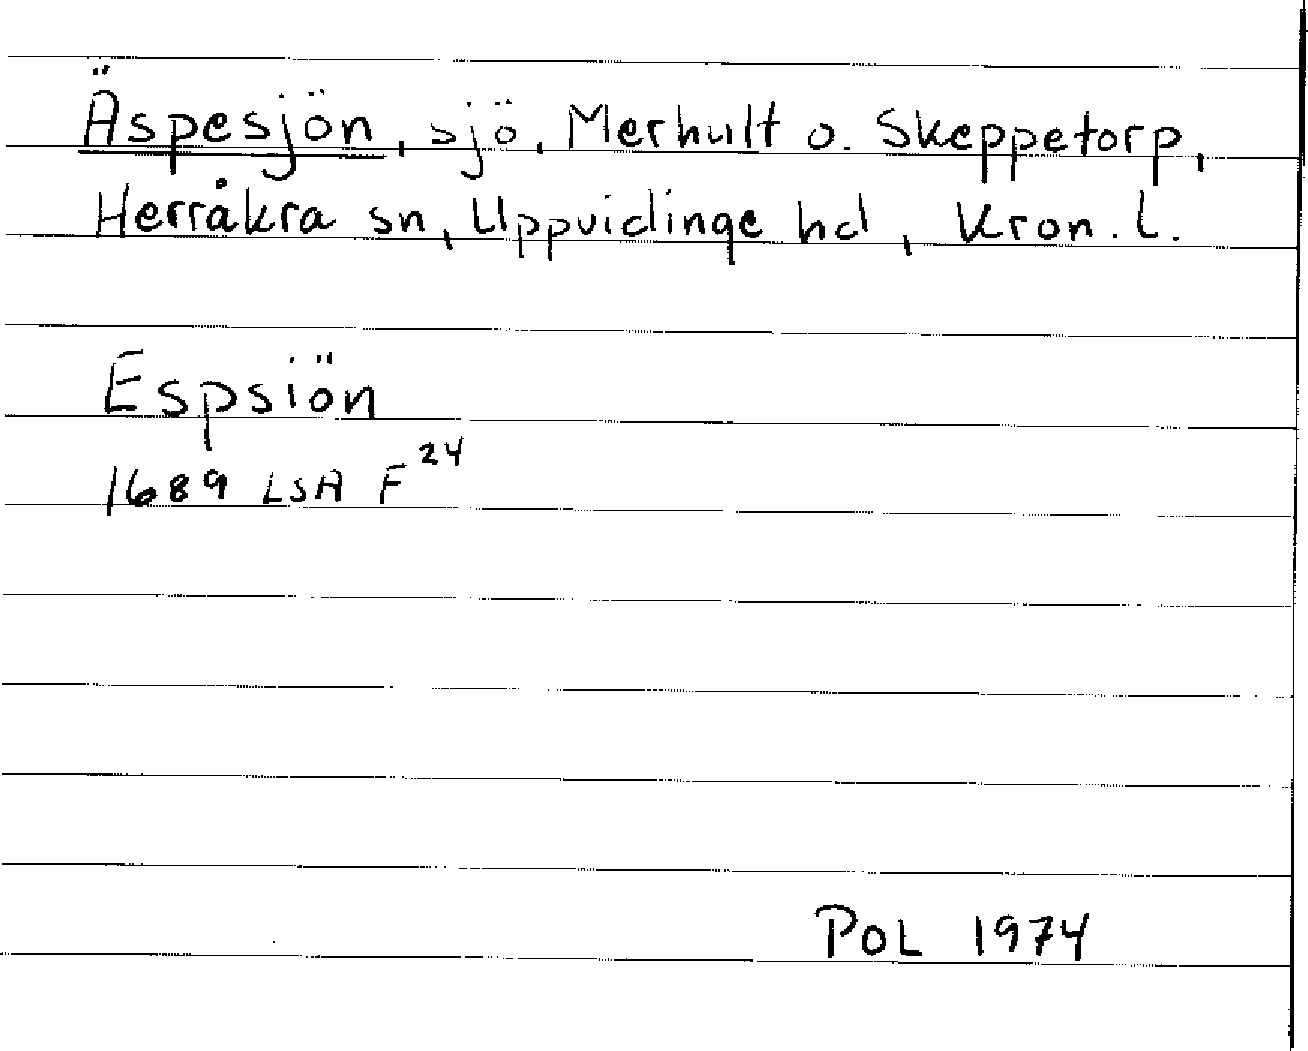 Äspesjön, sjö, Merhult o. Skeppetorp,
Herråkra sn, Uppvidinge hd, Kron. l.
Espsiön
1689 LSA F 24
POL 1974